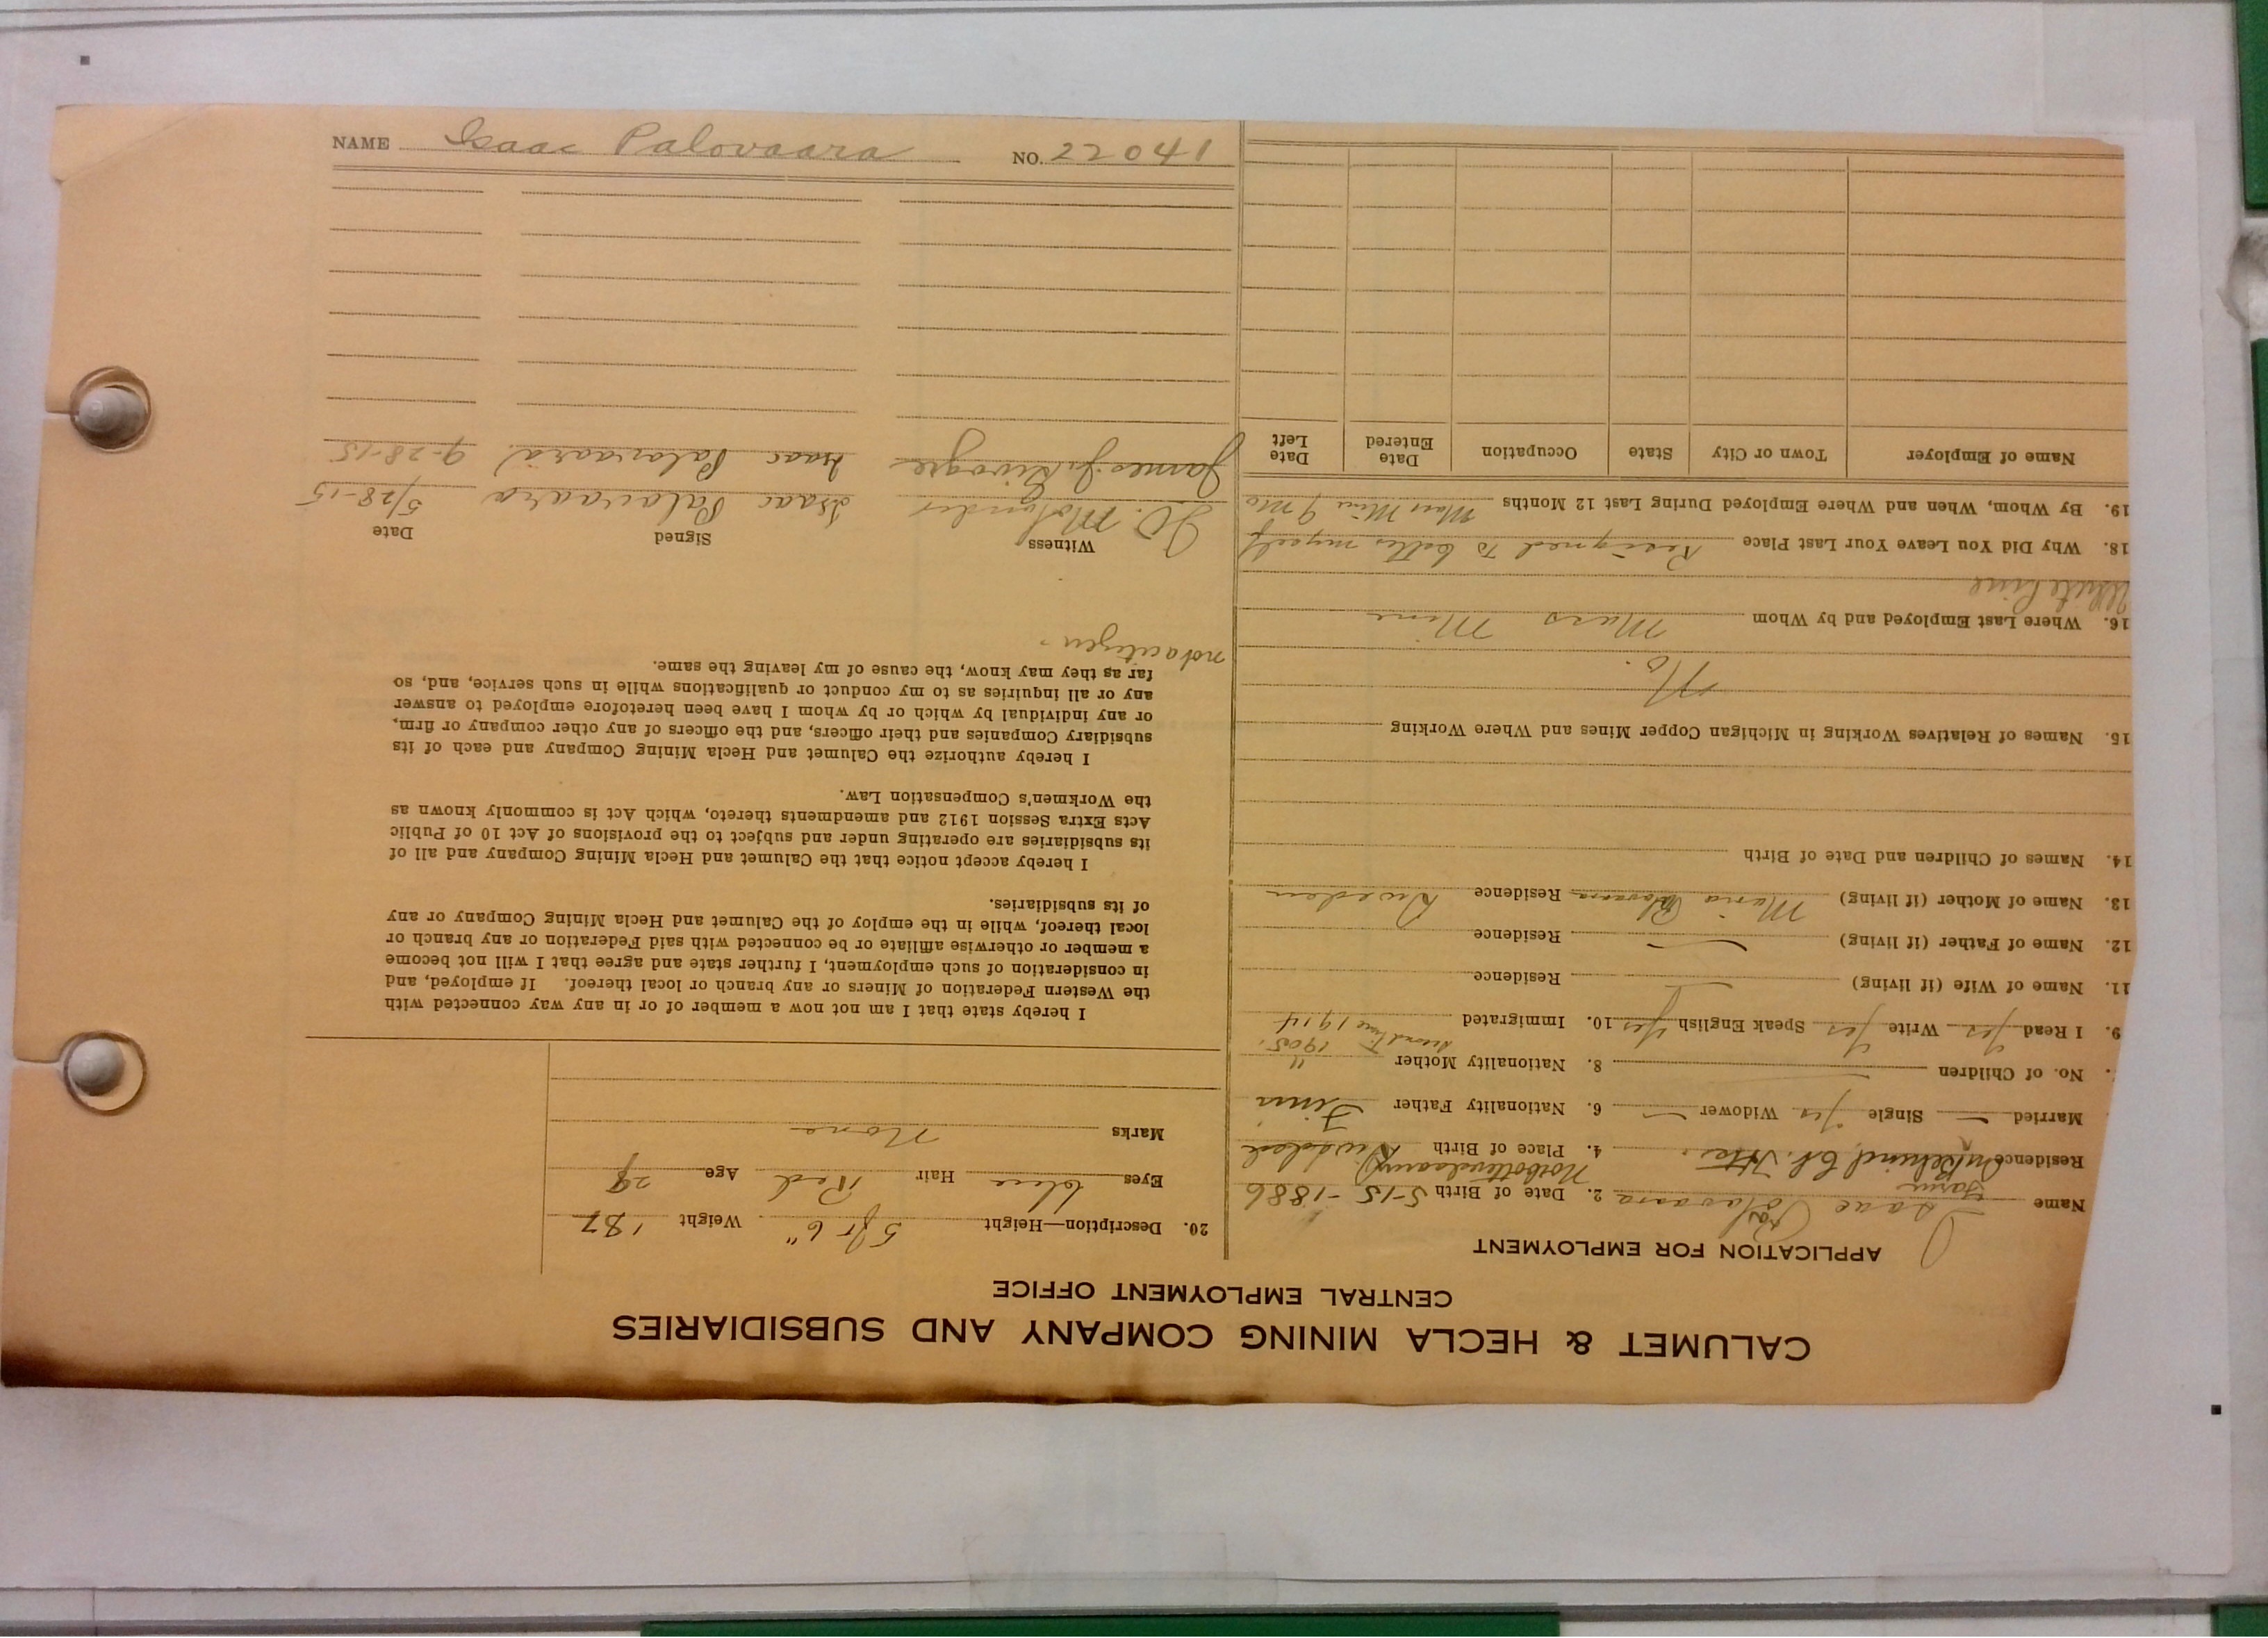 NAME Isaac Palovaara NO. 22041
CALUMET & HECLA MINING COMPANY AND SUBSIDIARIES
CENTRAL EMPLOYMENT OFFICE
APPLICATION FOR EMPLOYMENT
Name Isaac Palovaara 2. Date of Birth 5-15-1886
Farm Norbottenslaan
Residence 4. Place of Birth Sweden
Married — Single yes Widower — 6. Nationality Father Finn
No. of Children 8. Nationality Mother "
1905
second time 1914
9. I Read yes Write yes Speak English yes 10. Immigrated
11. Name of Wife (if living) — Residence
12. Name of Father (if living) — Residence
13. Name of Mother (if living) Maria Palovaara Residence Sweden
14. Names of Children and Date of Birth
15. Names of Relatives Working in Michigan Copper Mines and Where Working
No.
16. Where Last Employed and by Whom Mass Mine
White Pine
18. Why Did You Leave Your Last Place Resigned to better myself
19. By Whom, When and Where Employed During Last 12 Months Mass Mine 9 mo
Name of Employer Town or City State Occupation Date Entered Date Left
20. Description—Height 5 ft 6" Weight 187
Eyes blue Hair Red Age 29
Marks None
I hereby state that I am not now a member of or in any way connected with
the Western Federation of Miners or any branch or local thereof. If employed, and
in consideration of such employment, I further state and agree that I will not become
a member or otherwise affiliate or be connected with said Federation or any branch or
local thereof, while in the employ of the Calumet and Hecla Mining Company or any
of its subsidiaries.
I hereby accept notice that the Calumet and Hecla Mining Company and all of
its subsidiaries are operating under and subject to the provisions of Act 10 of Public
Acts Extra Session 1912 and amendments thereto, which Act is commonly known as
the Workmen's Compensation Law.
I hereby authorize the Calumet and Hecla Mining Company and each of its
subsidiary Companies and their officers, and the officers of any other company or firm,
or any individual by which or by whom I have been heretofore employed to answer
any or all inquiries as to my conduct or qualifications while in such service, and, so
far as they may know, the cause of my leaving the same.
not a citizen -
Witness Signed Date
Isaac Palovaara 5/28-15
James Isaac Palovaara 9-28-15